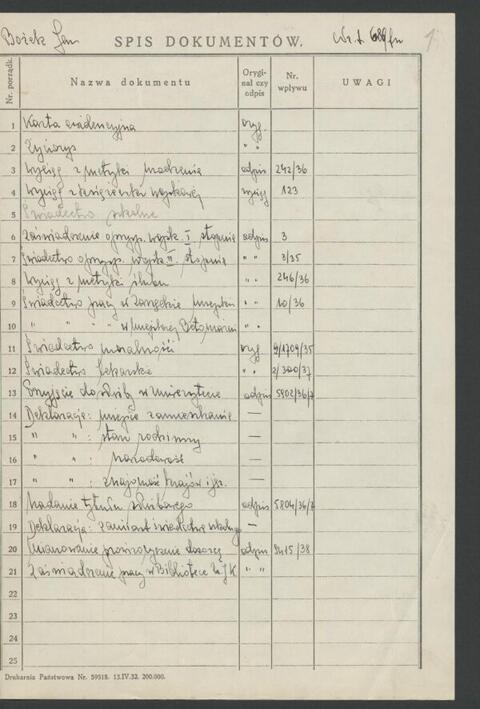 Bożek Jan SPIS DOKUMENTÓW. 1
Nr. porządk. Nazwa dokumentu Orygi- nał czy odpis Nr. wpływu UWAGI
1 Karta ewidencyjna oryg.
2 Życiorys " "
3 Wyciąg z metryki urodzenia odpis 242/36
4 Wyciąg z książeczki wojskowej wyciąg 123
5 Świadectwo szkolne
6 Zaświadczenie o przysp. wojsk. I stopnia odpis 3
7 Świadectwo o przysp. wojsk. II stopnia " " 3/35
8 Wyciąg z metryki ślubu " " 246/36
9 Świadectwo pracy w Zarządzie miejskim " " 10/36
10 " " " w miejskiej " "
11 Świadectwo moralności oryg. 9/1709/35
12 Świadectwo lekarskie " " 2/300/37
13 Przyjęcie do służby w Uniwersytecie odpis 5902/36/7
14 Deklaracja: miejsce zamieszkania —
15 " " : stan rodzinny —
16 " " : narodowość —
17 " " : znajomość krajów i jęz. —
18 Nadanie tytułu służbowego odpis 5804/36/7
19 Deklaracja: zamiast świadectwa szkolnego —
20 Mianowanie prowizorycznie odpis 9415/38
21 Zaświadczenie pracy w Bibliotece UJK " "
22
23
24
25
Drukarnia Państwowa Nr. 59518. 13.IV.32. 200.000.